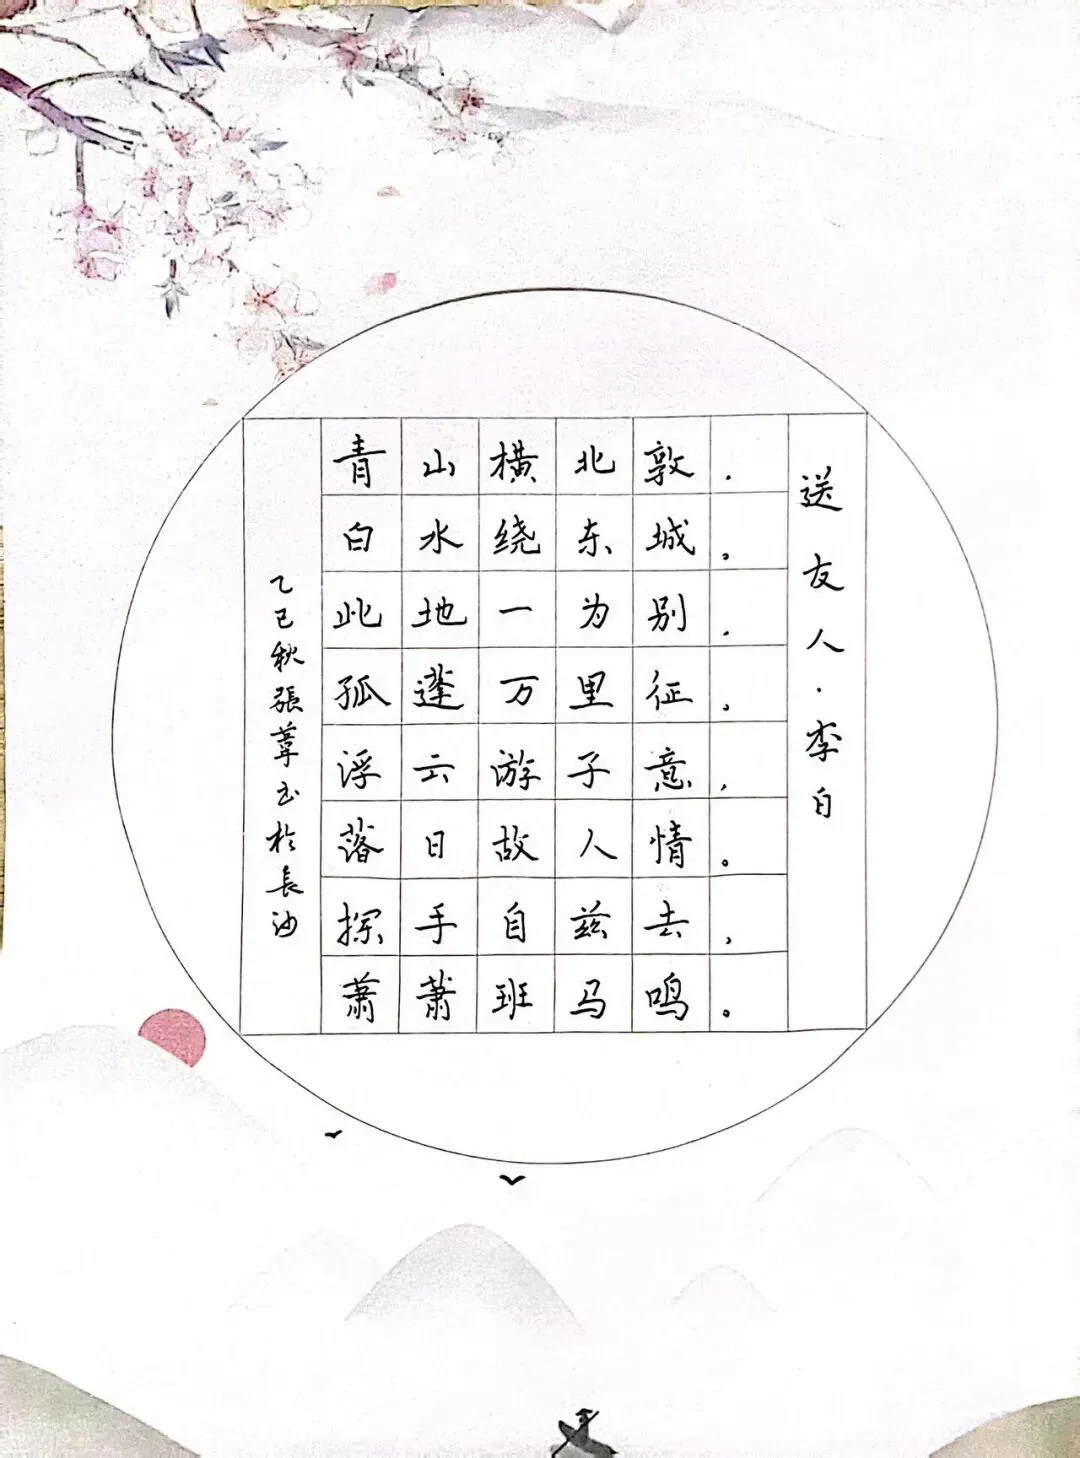 送友人·李白
青山横北敦.
白水绕东城。
此地一为别.
孤蓬万里征,
浮云游子意,
落日故人情。
探手自兹去,
萧萧班马鸣。
乙巳秋張葦书於長沙